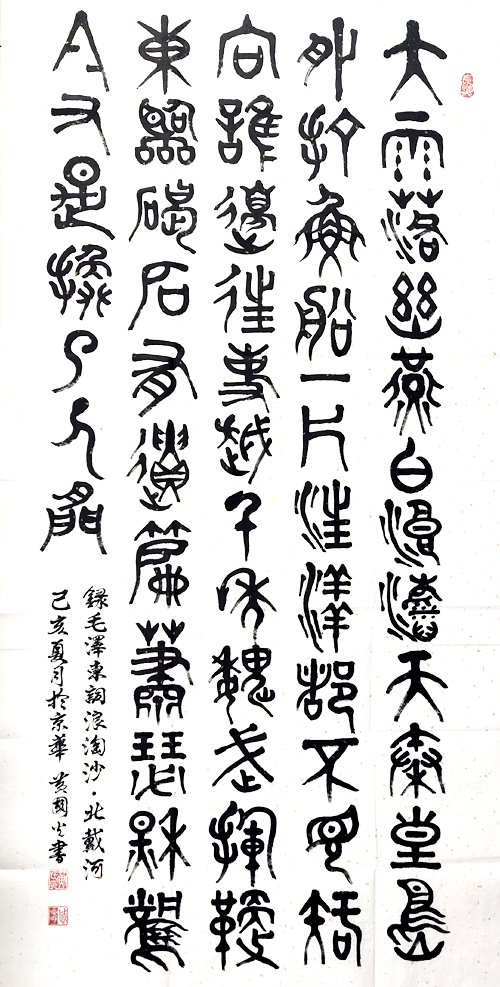 大雨落幽燕白浪濤天秦皇島
外打魚船一片汪洋都不見知
向誰邊往事越千年魏武揮鞭
東臨碣石有遺篇蕭瑟秋風
今又是換了人間
錄毛澤東詞浪淘沙·北戴河
己亥夏月於京華 黃國光書